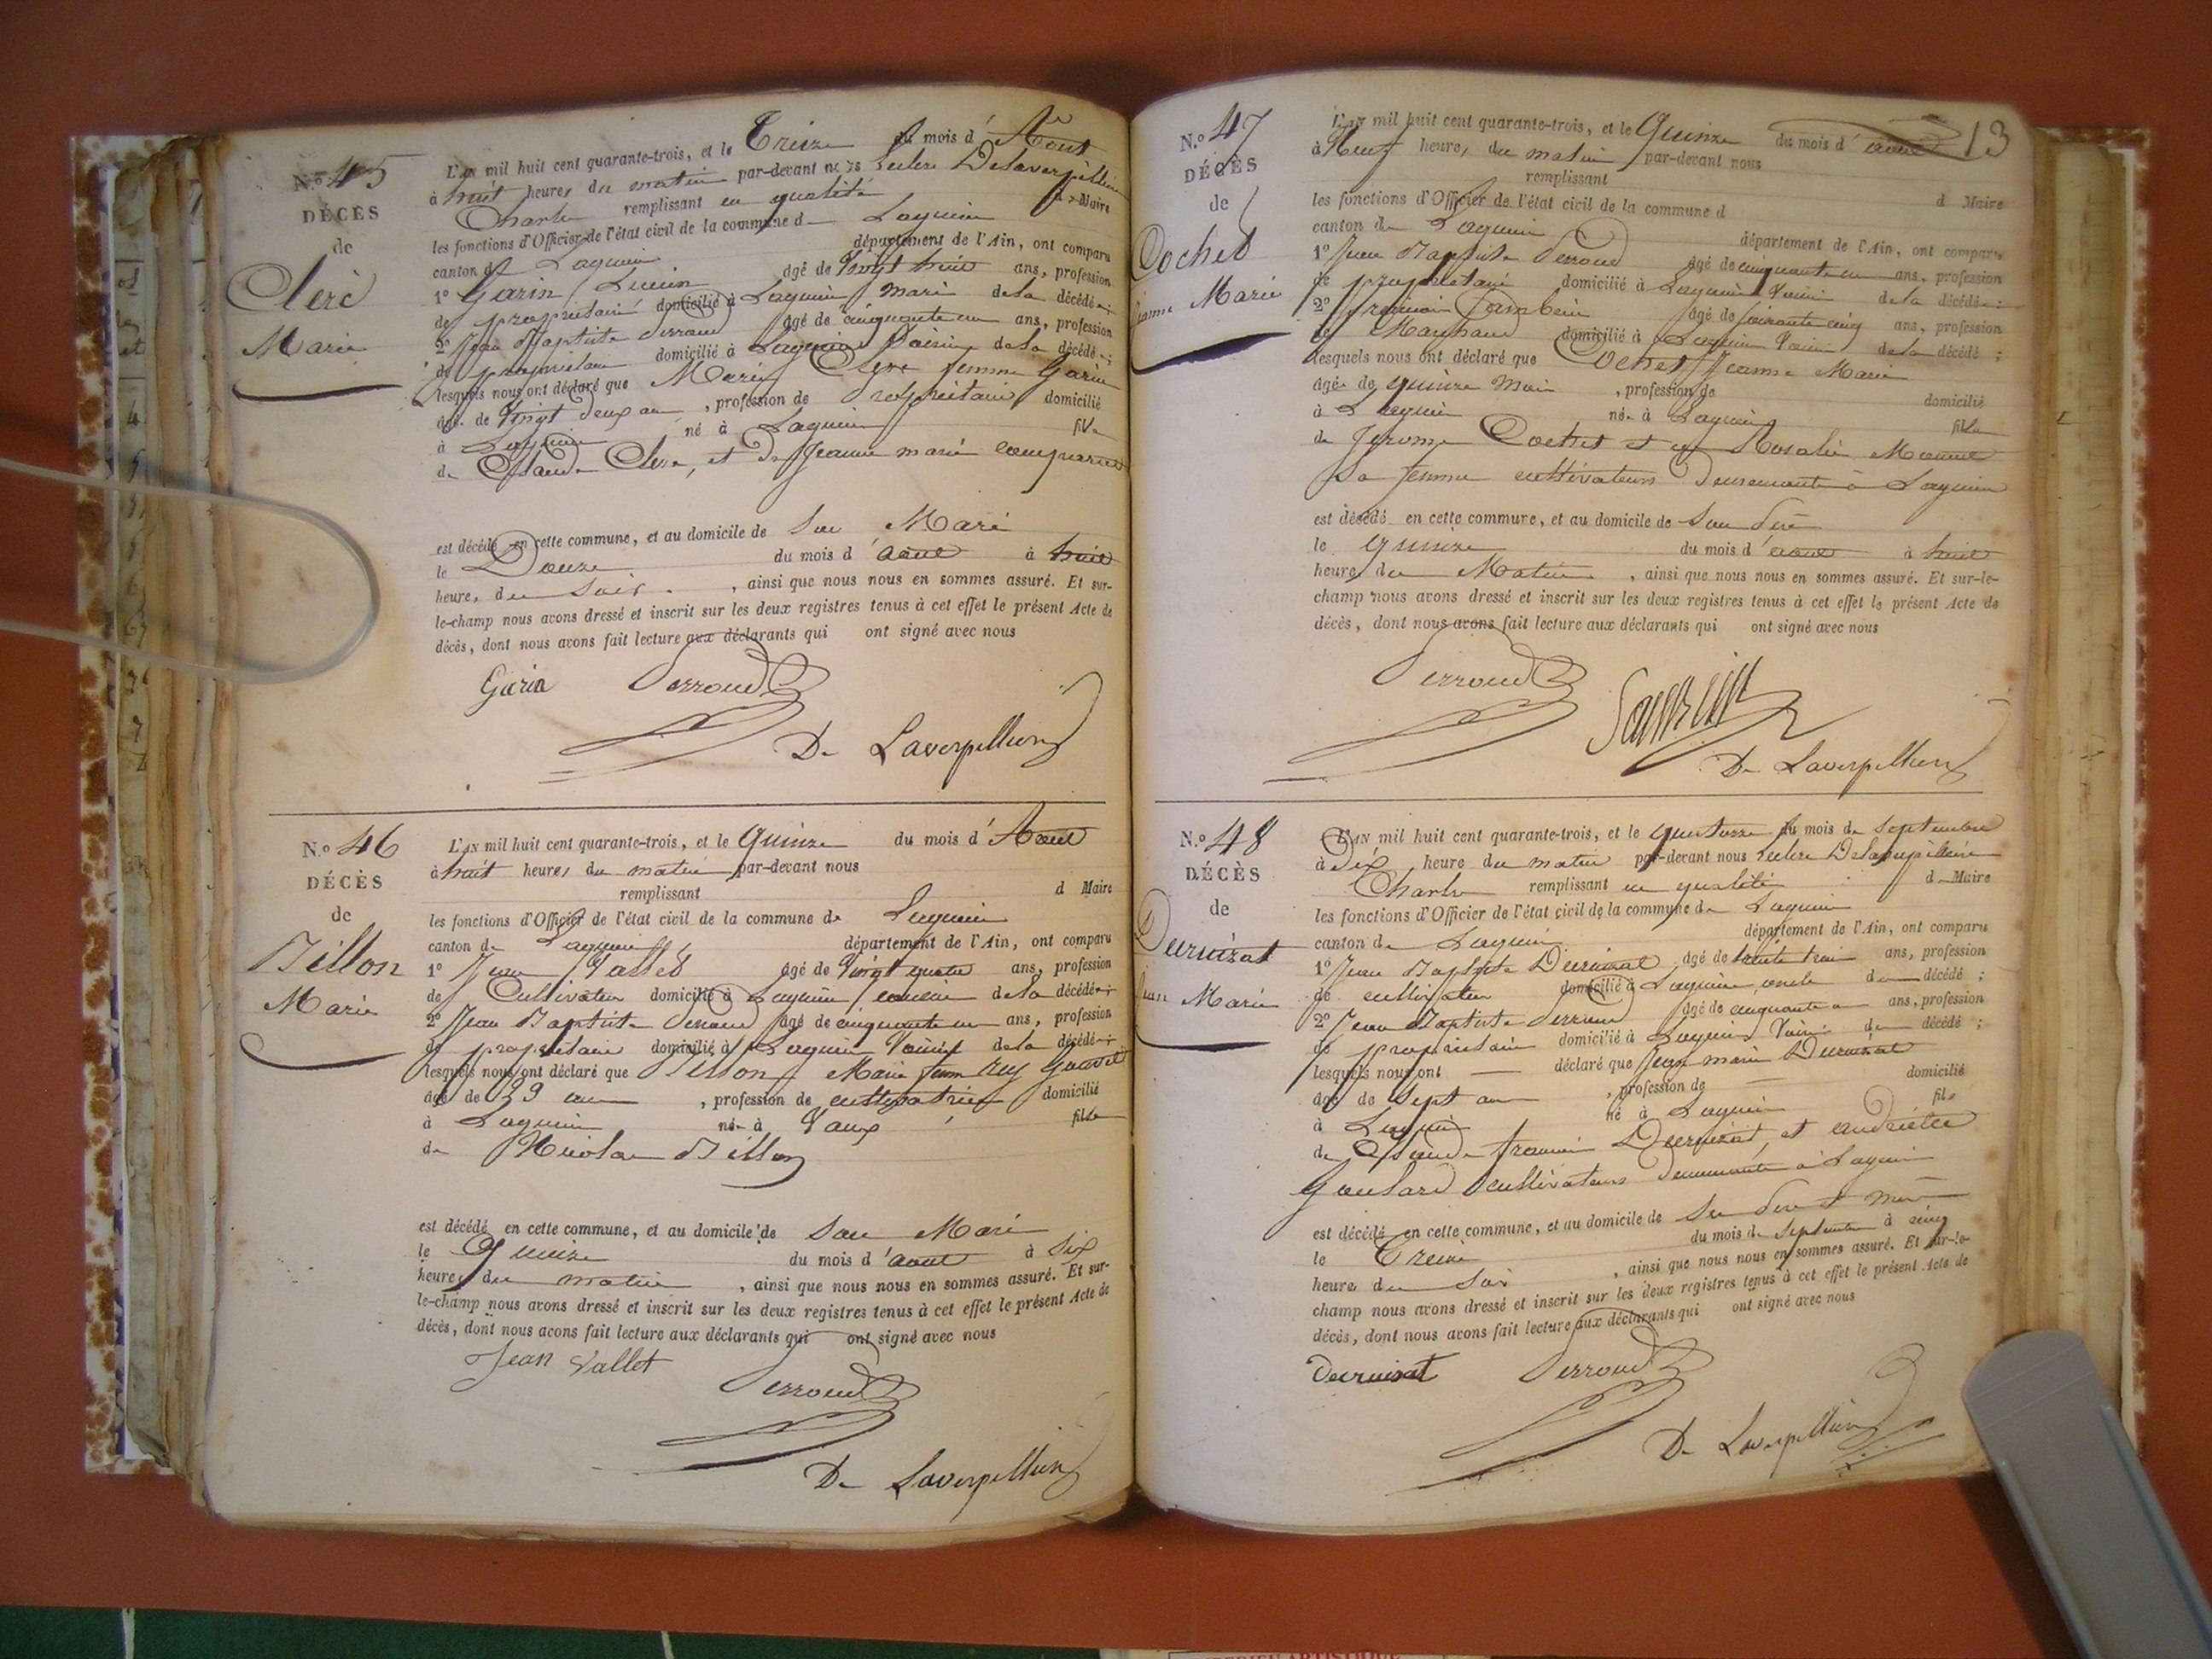 N.º 45
DÉCÈS
de
Clerc
Marie
L'AN mil huit cent quarante-trois, et le Treize du mois d'Août
à huit heures du matin par-devant nous Leclerc Delaverpilliere
Charles remplissant en qualité de Maire
les fonctions d'Officier de l'état civil de la commune d Lagnieu
canton de Lagnieu département de l'Ain, ont comparu
1º Garin Lucien âgé de vingt huit ans, profession
de propriétaire domicilié à Lagnieu mari de la décédée;
2º Jean Baptiste Perroud âgé de cinquante un ans, profession
de propriétaire domicilié à Lagnieu Voisin de la décédée;
lesquels nous ont déclaré que Marie Clerc femme Garin
âgé de Vingt deux ans, profession de propriétaire domicilié
à Lagnieu né à Lagnieu fille
de Claude Clerc, et de Jeanne marie
est décédé en cette commune, et au domicile de Son Mari
le Douze du mois d'aout à huit
heures du Soir, ainsi que nous nous en sommes assuré. Et sur-
le-champ nous avons dressé et inscrit sur les deux registres tenus à cet effet le présent Acte de
décès, dont nous avons fait lecture aux déclarants qui ont signé avec nous
Garin Perroud
De Laverpilliere
N.º 46
DÉCÈS
de
Billon
Marie
L'AN mil huit cent quarante-trois, et le Quinze du mois d'Aout
à huit heures du matin par-devant nous
remplissant d Maire
les fonctions d'Officier de l'état civil de la commune de Lagnieu
canton de Lagnieu département de l'Ain, ont comparu
1º Jean Vallet âgé de Vingt quatre ans, profession
de Cultivateur domicilié à Lagnieu cousin de la décédée;
2º Jean Baptiste Perroud âgé de cinquante un ans, profession
de propriétaire domicilié à Lagnieu Voisin de la décédée;
lesquels nous ont déclaré que Billon Marie fem
âgé de 39 ans, profession de cultivatrice domicilié
à Lagnieu né à Vaux fille
de Nicolas Billon
est décédé en cette commune, et au domicile de Son Mari
le Quinze du mois d'aout à Six
heures du matin, ainsi que nous nous en sommes assuré. Et sur-
le-champ nous avons dressé et inscrit sur les deux registres tenus à cet effet le présent Acte de
décès, dont nous avons fait lecture aux déclarants qui ont signé avec nous
Jean Vallet
Perroud
De Laverpilliere
13
N.º 47
DÉCÈS
de
Cochet
Jeanne Marie
L'AN mil huit cent quarante-trois, et le Quinze du mois d'aout
à Neuf heures du matin par-devant nous
remplissant d Maire
les fonctions d'Officier de l'état civil de la commune d
canton de Lagnieu département de l'Ain, ont comparu
1º Jean Baptiste Perroud âgé de cinquante un ans, profession
de propriétaire domicilié à Lagnieu Voisin de la décédée;
2º françois âgé de soixante cinq ans, profession
de Marchand domicilié à Lagnieu Voisin de la décédé;
lesquels nous ont déclaré que Cochet Jeanne Marie
âgée de quinze Mois, profession de domicilié
à Lagnieu née à Lagnieu fille
de Jerome Cochet et de Rosalie
Sa femme cultivateurs Demeurants à Lagnieu
est décédé en cette commune, et au domicile de Son Père
le quinze du mois d'aout à huit
heures du Matin, ainsi que nous nous en sommes assuré. Et sur-le-
champ nous avons dressé et inscrit sur les deux registres tenus à cet effet le présent Acte de
décès, dont nous avons fait lecture aux déclarants qui ont signé avec nous
Perroud
De Laverpilliere
N.º 48
DÉCÈS
de
Decruizat
Jean Marie
L'AN mil huit cent quarante-trois, et le quatorze du mois de Septembre
à Dix heure du matin par-devant nous Leclerc Delaverpilliere
Charles remplissant en qualité de Maire
les fonctions d'Officier de l'état civil de la commune de Lagnieu
canton de Lagnieu département de l'Ain, ont comparu
1º Jean Baptiste Decruizat âgé de trente trois ans, profession
de cultivateur domicilié à Lagnieu oncle du décédé;
2º Jean Baptiste Perroud âgé de cinquante un ans, profession
de propriétaire domicilié à Lagnieu Voisin du décédé;
lesquels nous ont déclaré que Jean marie Decruizat
âgé de Sept ans, profession de domicilié
à Lagnieu né à Lagnieu fils
de Claude françois Decruizat, et
Goulard cultivateurs demeurants à Lagnieu
est décédé en cette commune, et au domicile de Ses Père et mère
le Treize du mois de Septembre à cinq
heures du Soir, ainsi que nous nous en sommes assuré. Et sur-le-
champ nous avons dressé et inscrit sur les deux registres tenus à cet effet le présent Acte de
décès, dont nous avons fait lecture aux déclarants qui ont signé avec nous
Decruisat Perroud
De Laverpilliere